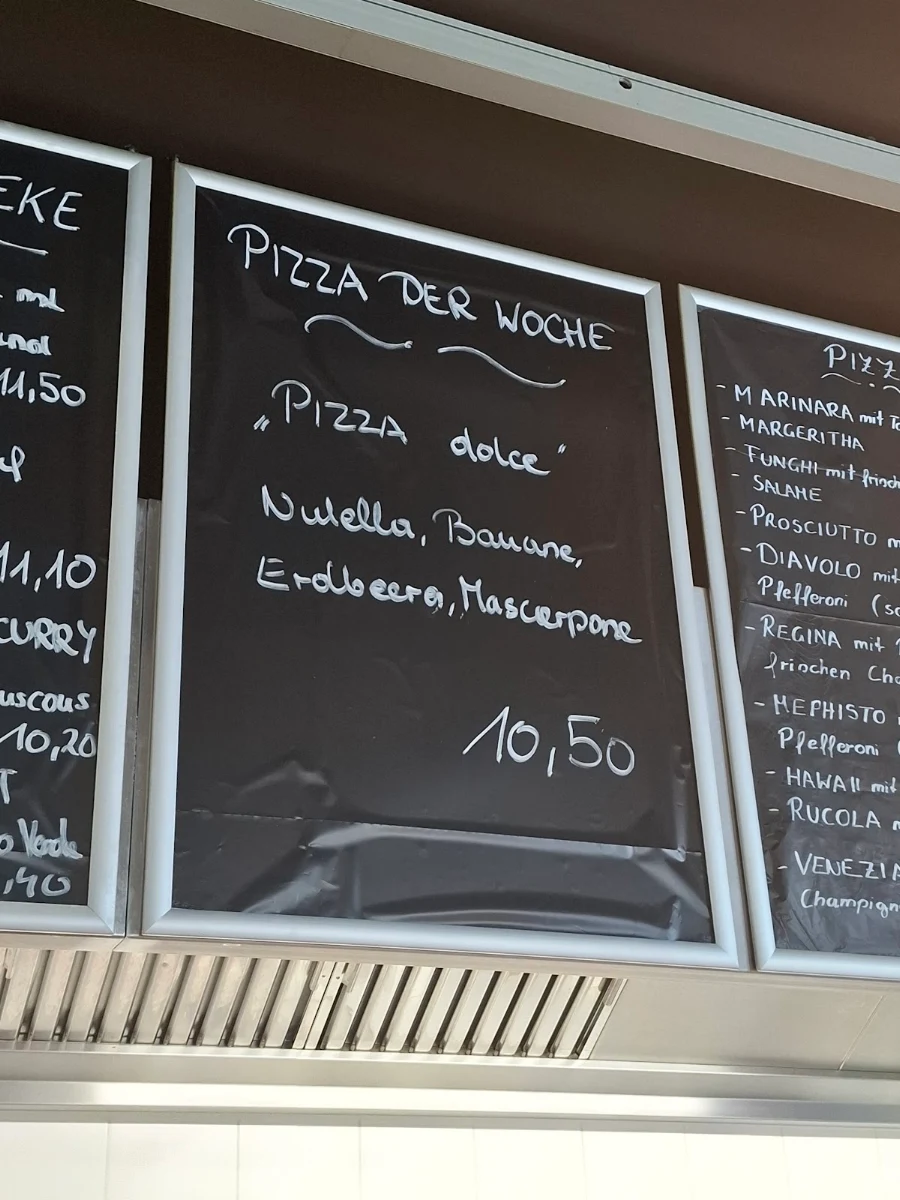 EKE
mit
und
11,50
11,10
CURRY
uscous
10,20
T
o Verde
,40
PIZZA DER WOCHE
„PIZZA dolce“
Nutella, Banane,
Erdbeere, Mascerpone
10,50
PIZZ
- MARINARA mit To
- MARGERITHA
- FUNGHI mit frisch
- SALAME
- PROSCIUTTO m
- DIAVOLO mit
Pfefferoni (sc
- REGINA mit
frischen Cha
- MEPHISTO
Pfefferoni (
- HAWAII mit
- RUCOLA m
- VENEZIA
Champign